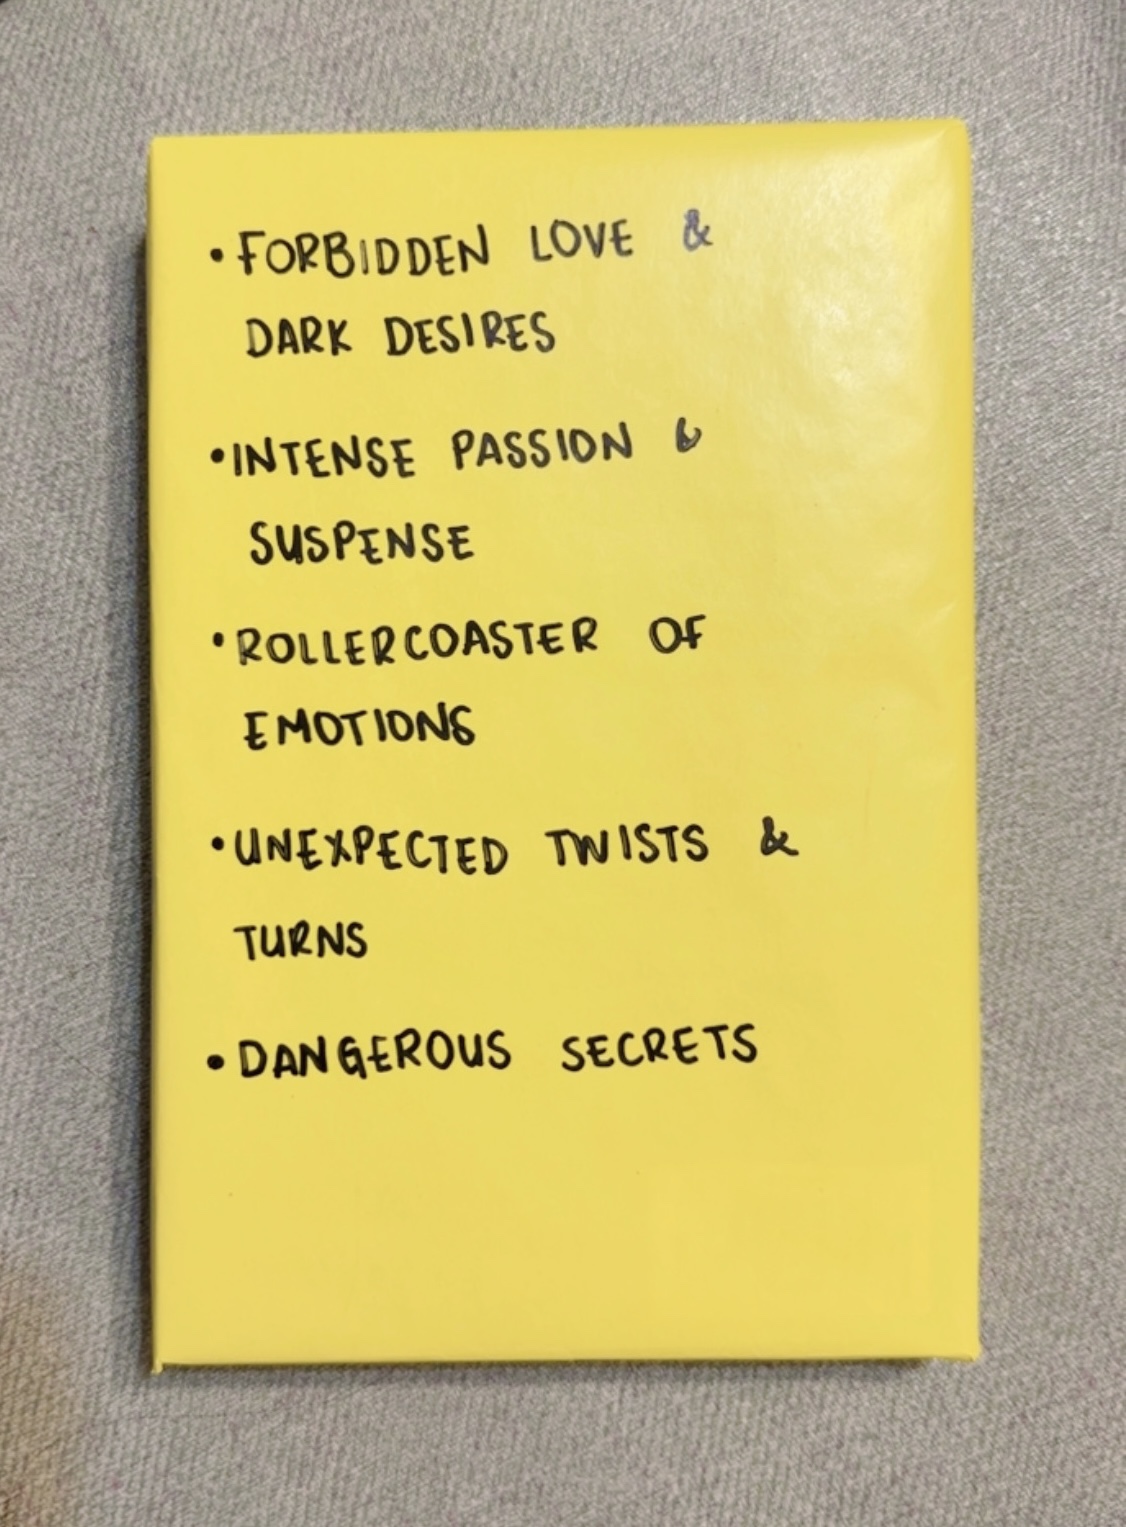 • FORBIDDEN LOVE &
DARK DESIRES
• INTENSE PASSION &
SUSPENSE
• ROLLERCOASTER OF
EMOTIONS
• UNEXPECTED TWISTS &
TURNS
• DANGEROUS SECRETS